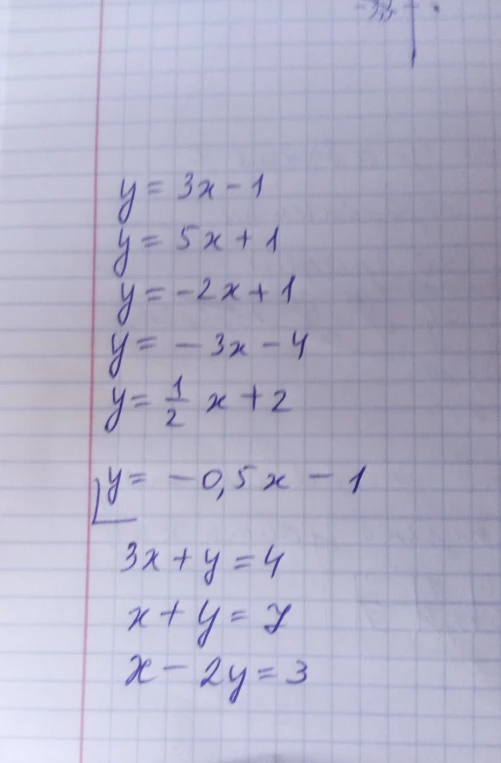 y = 3x - 1
y = 5x + 1
y = -2x + 1
y = - 3x - 4
y = 1/2 x + 2
y = - 0,5x - 1
3x + y = 4
x + y = 7
x - 2y = 3